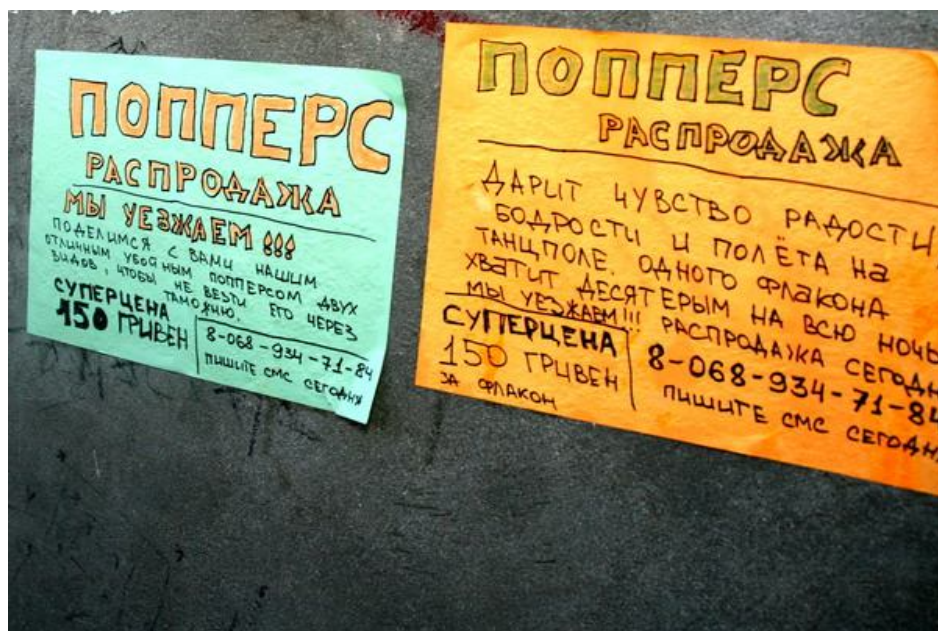 ПОППЕРС
РАСПРОДАЖА
МЫ УЕЗЖАЕМ !!!
ПОДЕЛИМСЯ С ВАМИ НАШИМ
ОТЛИЧНЫМ УБОЙНЫМ ПОППЕРСОМ ДВУХ
ВИДОВ, ЧТОБЫ НЕ ВЕЗТИ ЕГО ЧЕРЕЗ
ТАМОЖНЮ.
СУПЕРЦЕНА
150 ГРИВЕН
8-068-934-71-84
ПИШИТЕ СМС СЕГОДНЯ
ПОППЕРС
РАСПРОДАЖА
ДАРИТ ЧУВСТВО РАДОСТИ
БОДРОСТИ И ПОЛЁТА НА
ТАНЦПОЛЕ. ОДНОГО ФЛАКОНА
ХВАТИТ ДЕСЯТЕРЫМ НА ВСЮ НОЧЬ
МЫ УЕЗЖАЕМ!!! РАСПРОДАЖА СЕГОДН
СУПЕРЦЕНА
150 ГРИВЕН
ЗА ФЛАКОН
8-068-934-71-84
ПИШИТЕ СМС СЕГОДН